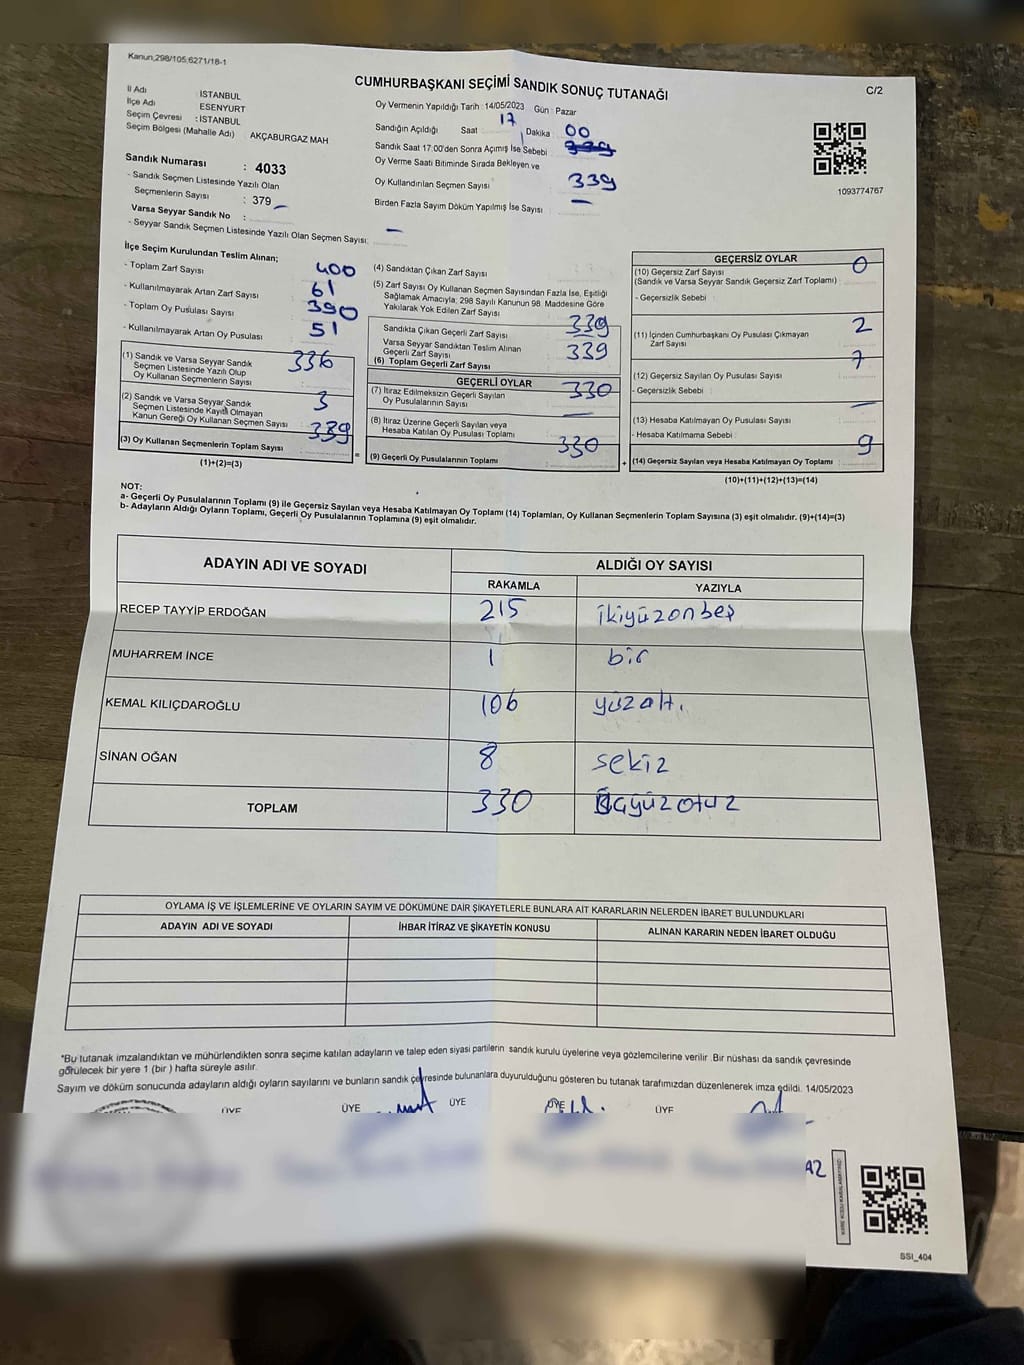 Kanun;298/105;6271/18-1
CUMHURBAŞKANI SEÇİMİ SANDIK SONUÇ TUTANAĞI
C/2
İl Adı : İSTANBUL
İlçe Adı : ESENYURT
Seçim Çevresi : İSTANBUL
Seçim Bölgesi (Mahalle Adı) : AKÇABURGAZ MAH
Oy Vermenin Yapıldığı Tarih : 14/05/2023 Gün : Pazar
Sandığın Açıldığı Saat 17 Dakika : 00
Sandık Saat 17:00'den Sonra Açımış İse Sebebi :
Oy Verme Saati Bitiminde Sırada Bekleyen ve
Oy Kullandırılan Seçmen Sayısı : 339
Birden Fazla Sayım Döküm Yapılmış İse Sayısı : —
1093774767
Sandık Numarası : 4033
- Sandık Seçmen Listesinde Yazılı Olan
Seçmenlerin Sayısı : 379
Varsa Seyyar Sandık No :
- Seyyar Sandık Seçmen Listesinde Yazılı Olan Seçmen Sayısı: —
İlçe Seçim Kurulundan Teslim Alınan;
- Toplam Zarf Sayısı 400
- Kullanılmayarak Artan Zarf Sayısı 61
- Toplam Oy Pusulası Sayısı 390
- Kullanılmayarak Artan Oy Pusulası 51
(1) Sandık ve Varsa Seyyar Sandık
Seçmen Listesinde Yazılı Olup
Oy Kullanan Seçmenlerin Sayısı 336
(2) Sandık ve Varsa Seyyar Sandık
Seçmen Listesinde Kayıtlı Olmayan
Kanun Gereği Oy Kullanan Seçmen Sayısı 3
(3) Oy Kullanan Seçmenlerin Toplam Sayısı 339
(1)+(2)=(3)
(4) Sandıktan Çıkan Zarf Sayısı
(5) Zarf Sayısı Oy Kullanan Seçmen Sayısından Fazla İse, Eşitliği
Sağlamak Amacıyla; 298 Sayılı Kanunun 98. Maddesine Göre
Yakılarak Yok Edilen Zarf Sayısı
Sandıkta Çıkan Geçerli Zarf Sayısı 339
Varsa Seyyar Sandıktan Teslim Alınan
Geçerli Zarf Sayısı 339
(6) Toplam Geçerli Zarf Sayısı
GEÇERLİ OYLAR
(7) İtiraz Edilmeksizin Geçerli Sayılan
Oy Pusulalarının Sayısı 330
(8) İtiraz Üzerine Geçerli Sayılan veya
Hesaba Katılan Oy Pusulası Toplamı —
(9) Geçerli Oy Pusulalarının Toplamı 330
GEÇERSİZ OYLAR
(10) Geçersiz Zarf Sayısı 0
(Sandık ve Varsa Seyyar Sandık Geçersiz Zarf Toplamı) :
- Geçersizlik Sebebi :
(11) İçinden Cumhurbaşkanı Oy Pusulası Çıkmayan 2
Zarf Sayısı
(12) Geçersiz Sayılan Oy Pusulası Sayısı 7
- Geçersizlik Sebebi :
(13) Hesaba Katılmayan Oy Pusulası Sayısı —
- Hesaba Katılmama Sebebi :
(14) Geçersiz Sayılan veya Hesaba Katılmayan Oy Toplamı 9
(10)+(11)+(12)+(13)=(14)
NOT:
a- Geçerli Oy Pusulalarının Toplamı (9) ile Geçersiz Sayılan veya Hesaba Katılmayan Oy Toplamı (14) Toplamları, Oy Kullanan Seçmenlerin Toplam Sayısına (3) eşit olmalıdır. (9)+(14)=(3)
b- Adayların Aldığı Oyların Toplamı, Geçerli Oy Pusulalarının Toplamına (9) eşit olmalıdır.
ADAYIN ADI VE SOYADI ALDIĞI OY SAYISI
RAKAMLA YAZIYLA
RECEP TAYYİP ERDOĞAN 215 ikiyüzonbeş
MUHARREM İNCE 1 bir
KEMAL KILIÇDAROĞLU 106 yüzaltı
SİNAN OĞAN 8 sekiz
TOPLAM 330 üçyüzotuz
OYLAMA İŞ VE İŞLEMLERİNE VE OYLARIN SAYIM VE DÖKÜMÜNE DAİR ŞİKAYETLERLE BUNLARA AİT KARARLARIN NELERDEN İBARET BULUNDUKLARI
ADAYIN ADI VE SOYADI İHBAR İTİRAZ VE ŞİKAYETİN KONUSU ALINAN KARARIN NEDEN İBARET OLDUĞU
*Bu tutanak imzalandıktan ve mühürlendikten sonra seçime katılan adayların ve talep eden siyasi partilerin sandık kurulu üyelerine veya gözlemcilerine verilir. Bir nüshası da sandık çevresinde
görülecek bir yere 1 (bir) hafta süreyle asılır.
Sayım ve döküm sonucunda adayların aldığı oyların sayılarını ve bunların sandık çevresinde bulunanlara duyurulduğunu gösteren bu tutanak tarafımızdan düzenlenerek imza edildi. 14/05/2023
ÜYE ÜYE ÜYE ÜYE ÜYE
AZ
SSI_404